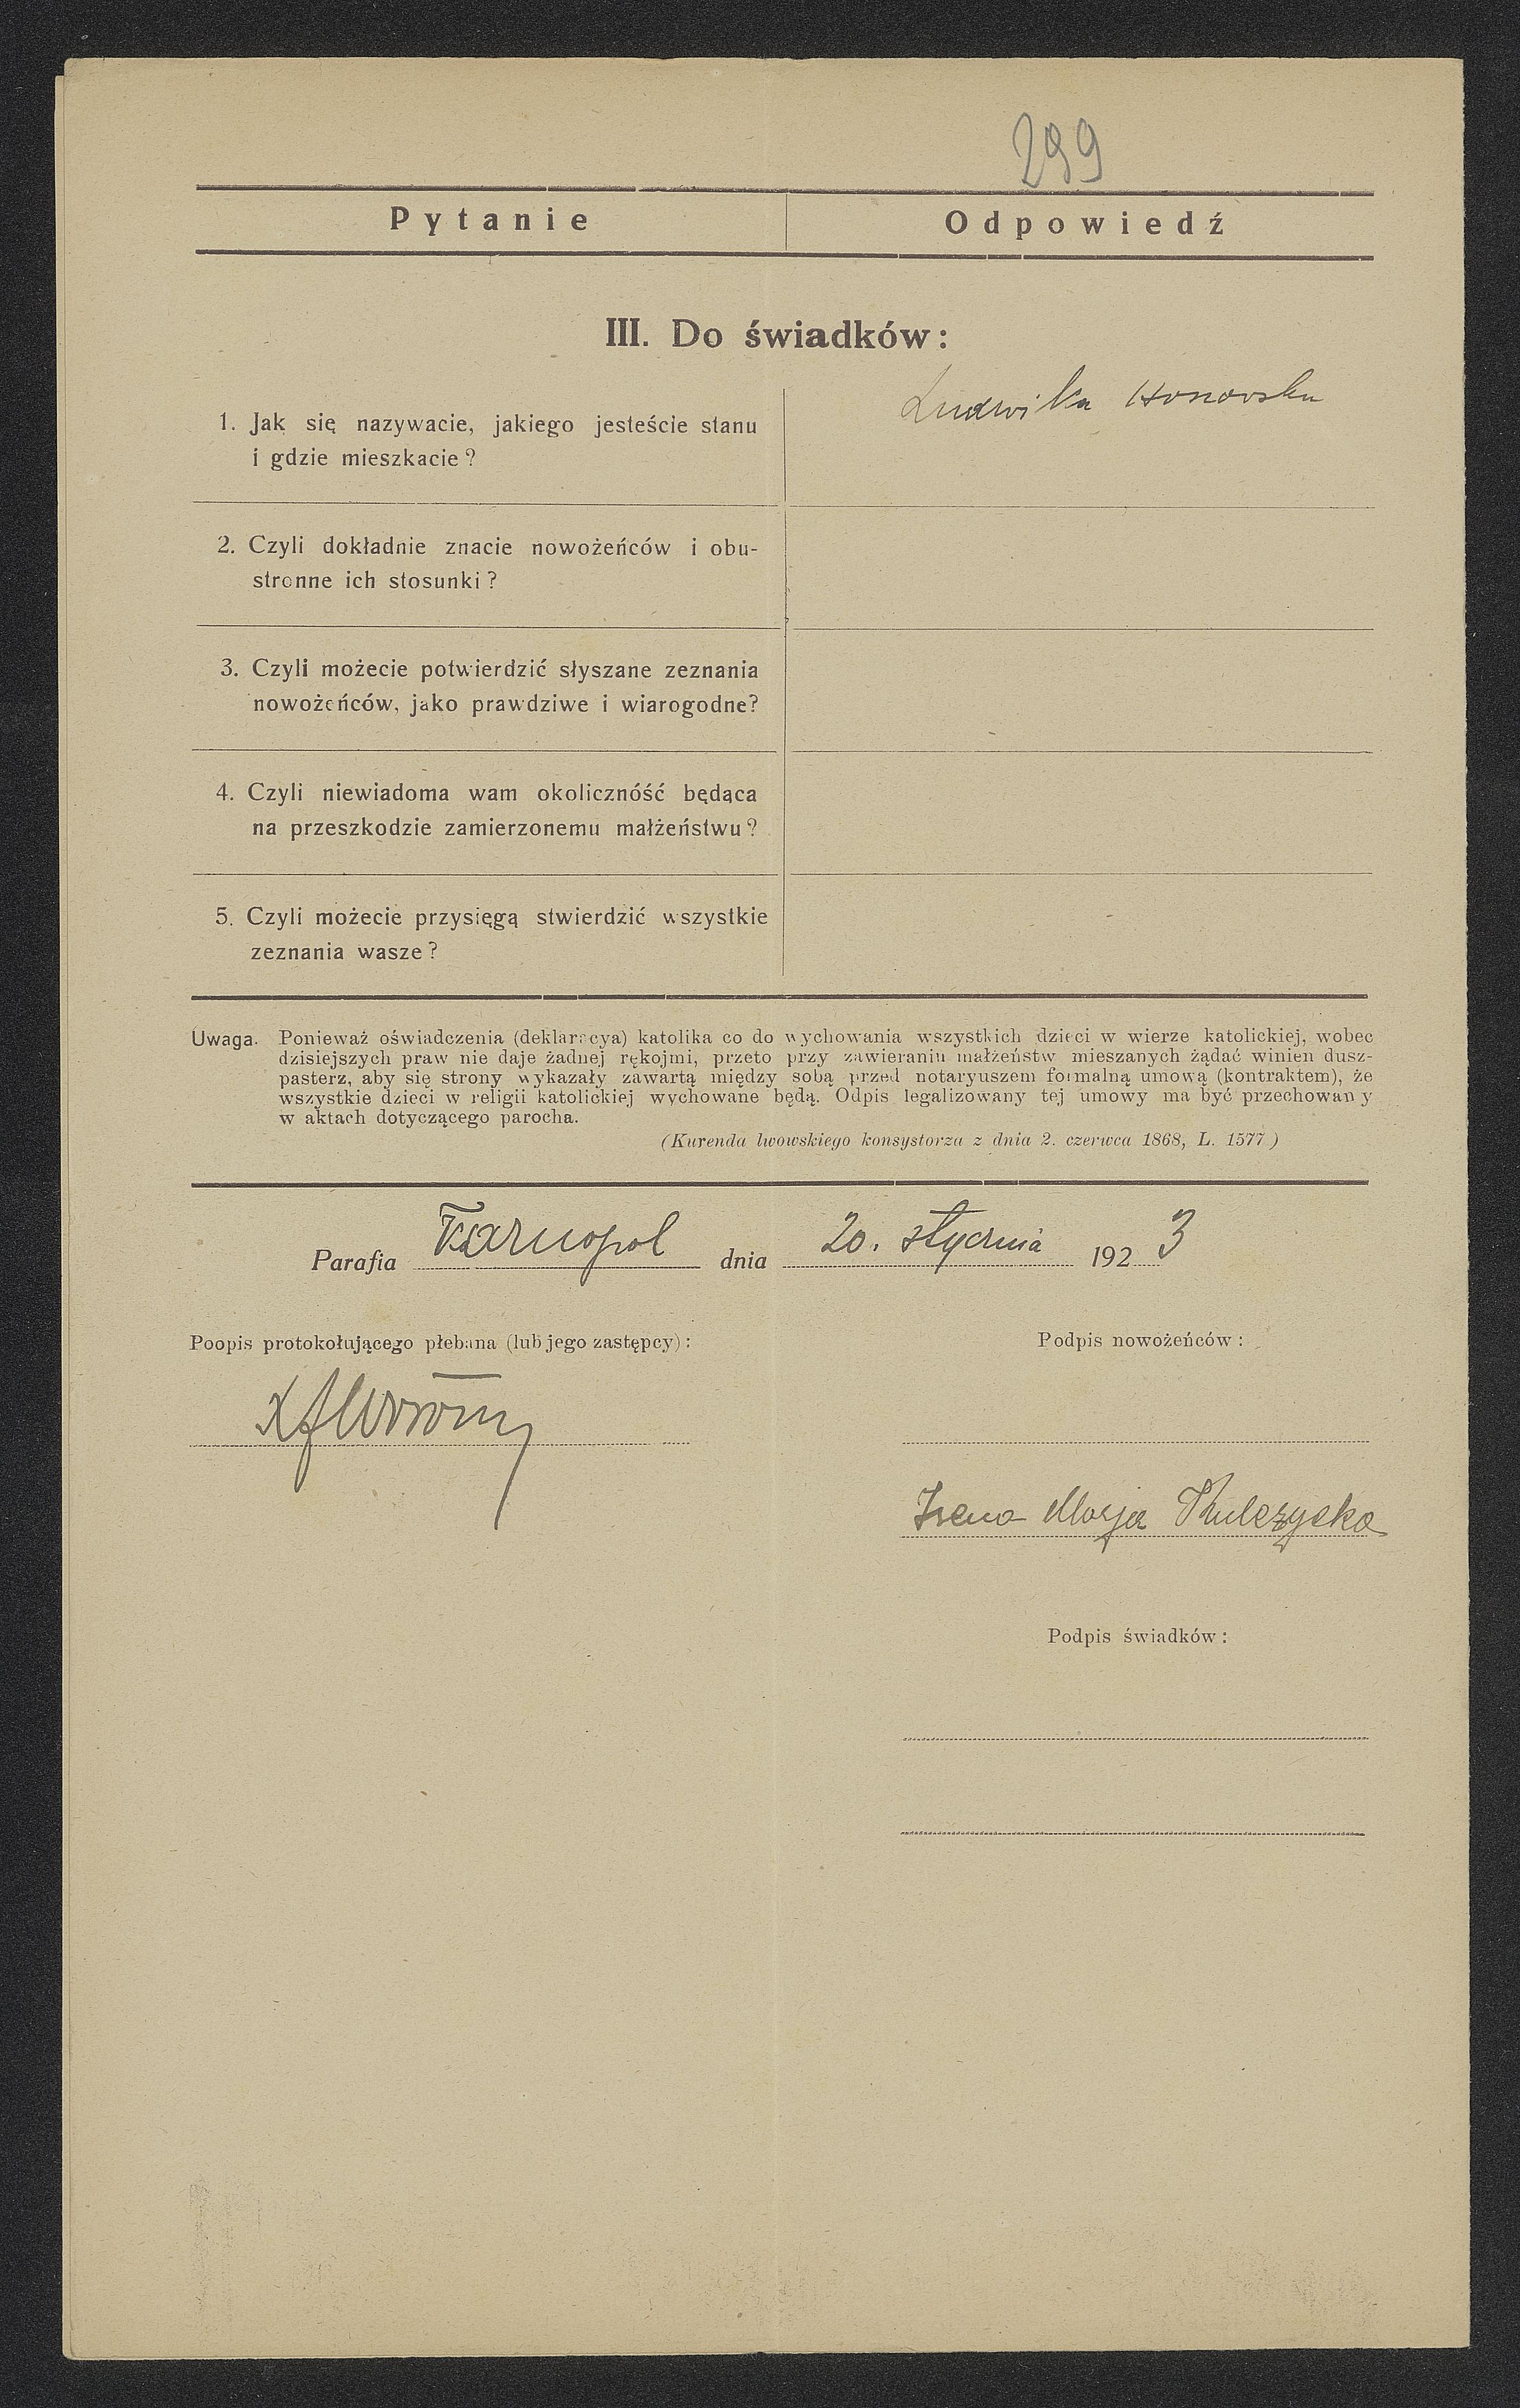 299
Pytanie
Odpowiedź
III. Do świadków:
1. Jak się nazywacie, jakiego jesteście stanu
i gdzie mieszkacie?
Ludwika
2. Czyli dokładnie znacie nowożeńców i obu-
stronne ich stosunki?
3. Czyli możecie potwierdzić słyszane zeznania
nowożeńców, jako prawdziwe i wiarogodne?
4. Czyli niewiadoma wam okolicznóść będąca
na przeszkodzie zamierzonemu małżeństwu?
5. Czyli możecie przysięgą stwierdzić wszystkie
zeznania wasze?
Uwaga. Ponieważ oświadczenia (deklaracya) katolika co do wychowania wszystkich dzieci w wierze katolickiej, wobec
dzisiejszych praw nie daje żadnej rękojmi, przeto przy zawieraniu małżeństw mieszanych żądać winien dusz-
pasterz, aby się strony wykazały zawartą między sobą przed notaryuszem formalną umową (kontraktem), że
wszystkie dzieci w religii katolickiej wychowane będą. Odpis legalizowany tej umowy ma być przechowany
w aktach dotyczącego parocha.
(Kurenda lwowskiego konsystorza z dnia 2. czerwca 1868, L. 1577)
Parafia Tarnopol dnia 20. stycznia 1923
Poopis protokołującego plebana (lub jego zastępcy):
Podpis nowożeńców:
Irena Marja Kulczycka
Podpis świadków: